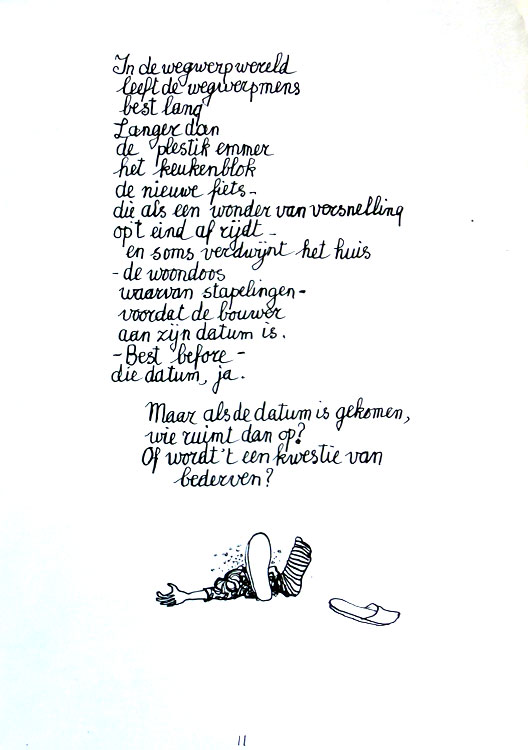 In de wegwerpwereld
leeft de wegwerpmens
best lang
Langer dan
de plestik emmer
het keukenblok
de nieuwe fiets -
die als een wonder van versnelling
op't eind af rijdt -
en soms verdwijnt het huis
- de woondoos
waarvan stapelingen -
voordat de bouwer
aan zijn datum is.
- Best before -
die datum, ja.
Maar als de datum is gekomen,
wie ruimt dan op?
Of wordt 't een kwestie van
bederven?
11